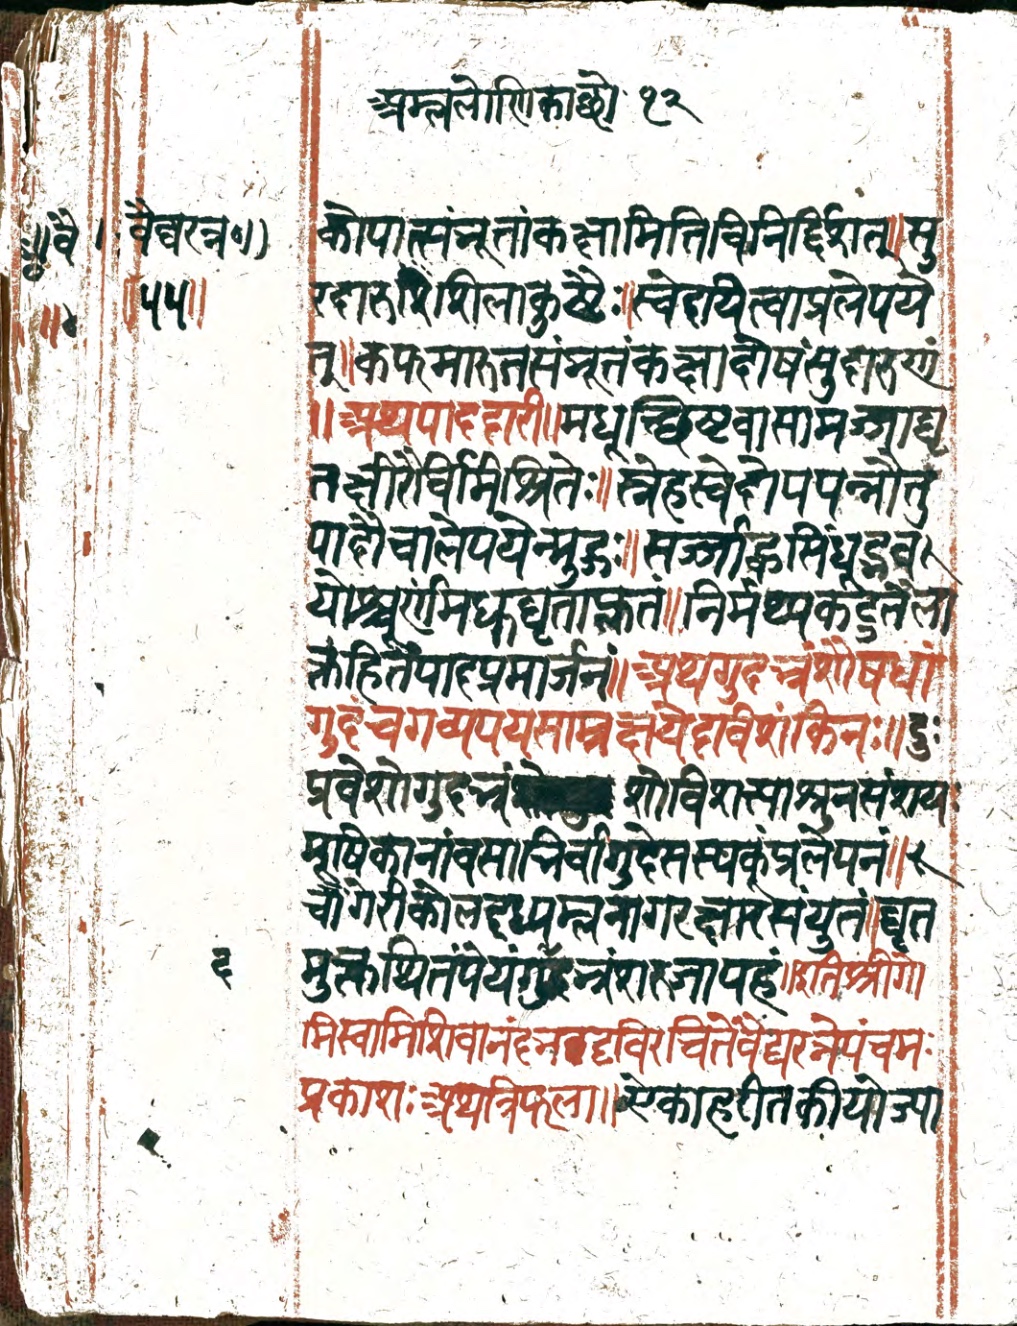 अम्ललोणिकाछो १२
कोपात्संभूतांकक्षामितिविनिर्द्दिशेत्॥सु
वैद्यरत्न॥
रदारुशिशिलाकुष्टैः॥स्वेदायित्वाप्रलेपये
५५॥
त्॥कफमारुतसंभूतंकक्षादोषंसुदारुणं
॥अथपाददारी॥मधूच्छिष्टवासामज्जाघृ
तक्षीरैर्विमिश्रितेः॥स्नेहस्वेदोपपन्नौतु
पादौचालेपयेन्मुहुः॥सर्ज्जाह्वसिंधूद्भव१
योश्चूर्णमधुघृताप्लुतं॥निर्मथ्यकटुतैला
क्तंहितंपादप्रमार्जनं॥अथगुदभ्रंशौषधां
गुदंचगव्यपयसाम्रक्षयेदाविशंकिनः॥दुः
प्रवेशोगुदभ्रं शोविशत्साश्रुनसंशयः
मूषिकानांवसाभिर्वागुदेसस्यकंप्रलेपनं॥१
चांगेरीकोलदध्यम्लनागरक्षारसंयुतं॥घृत
मुत्क्वथितंपेयंगुदभ्रंशरुजापहं॥इतिश्रीगो
६
मिस्वामिशिवानंदभट्टविरचितेवैद्यरत्नेपंचमः
प्रकाशःअथत्रिफला॥ऐकाहरीतकीयोज्या